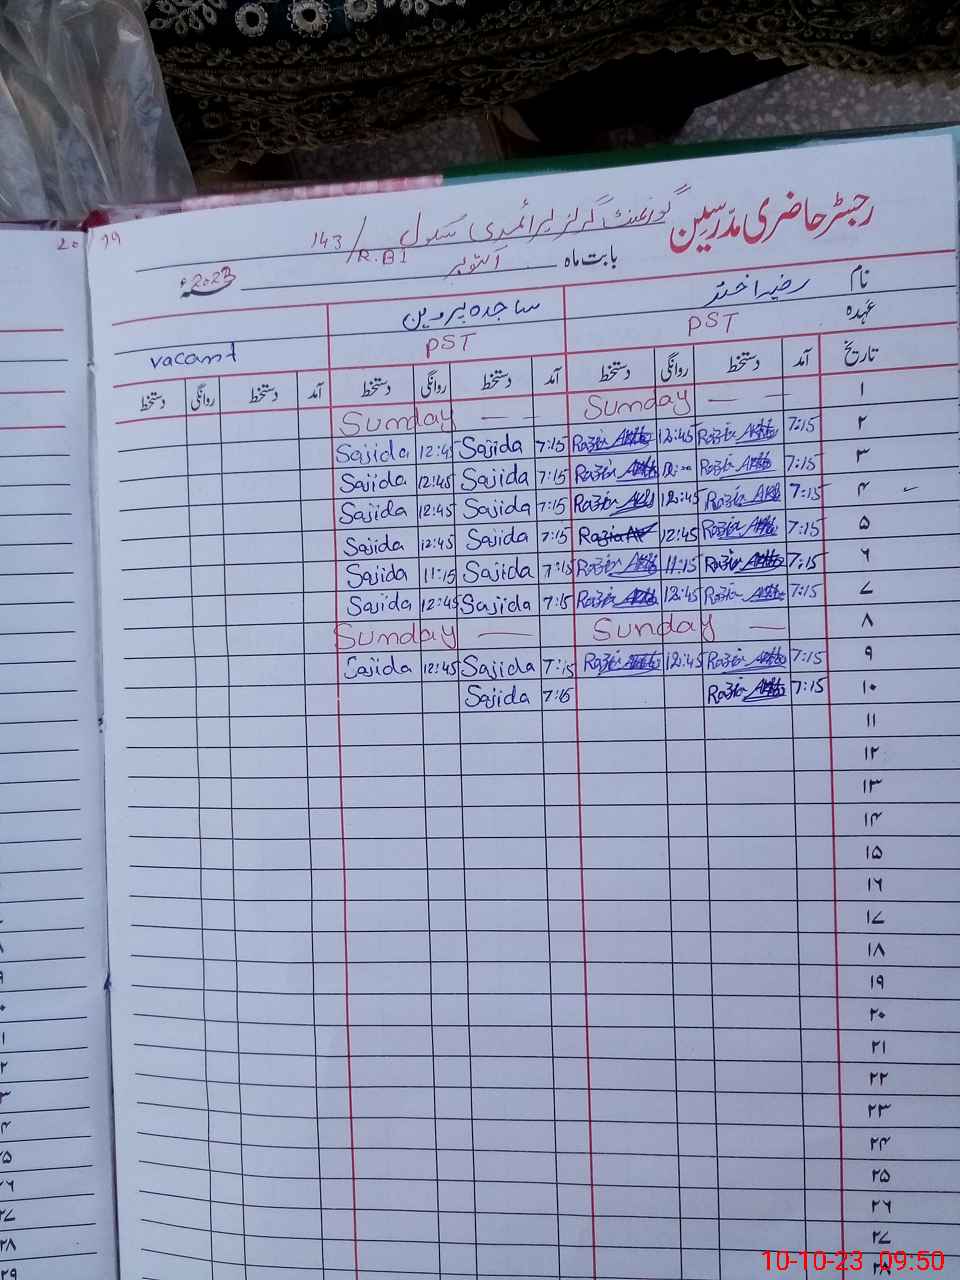 رجسٹر حاضری مدرسین گورنمنٹ گرلز پرائمری سکول 143/R.BI
20 / 19
بابت ماہ اکتوبر 2023ء
نام رضیہ اختر ساجدہ پروین
عہدہ PST PST vacant
تاریخ آمد دستخط روانگی دستخط آمد دستخط روانگی دستخط آمد دستخط روانگی دستخط
۱ Sunday Sunday
۲ 7:15 Razia Akhtar 12:45 Razia Akhtar 7:15 Sajida 12:45 Sajida
۳ 7:15 Razia Akhtar Razia Akhtar 7:15 Sajida 12:45 Sajida
۴ 7:15 Razia Akhtar 12:45 Razia Akhtar 7:15 Sajida 12:45 Sajida
۵ 7:15 Razia Akhtar 12:45 Razia 7:15 Sajida 12:45 Sajida
۶ 7:15 Razia Akhtar 11:15 Razia Akhtar 7:15 Sajida 11:15 Sajida
۷ 7:15 Razia Akhtar 12:45 Razia Akhtar 7:15 Sajida 12:45 Sajida
۸ Sunday Sunday
۹ 7:15 Razia Akhtar 12:45 Razia Akhtar 7:15 Sajida 12:45 Sajida
۱۰ 7:15 Razia Akhtar 7:15 Sajida
۱۱
۱۲
۱۳
۱۴
۱۵
۱۶
۱۷
۱۸
۱۹
۲۰
۲۱
۲۲
۲۳
۲۴
۲۵
۲۶
۲۷
۲۸
10-10-23 09:50